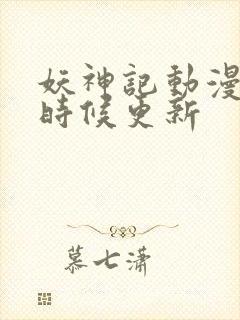 妖神記動漫
時候更新
慕七瀟